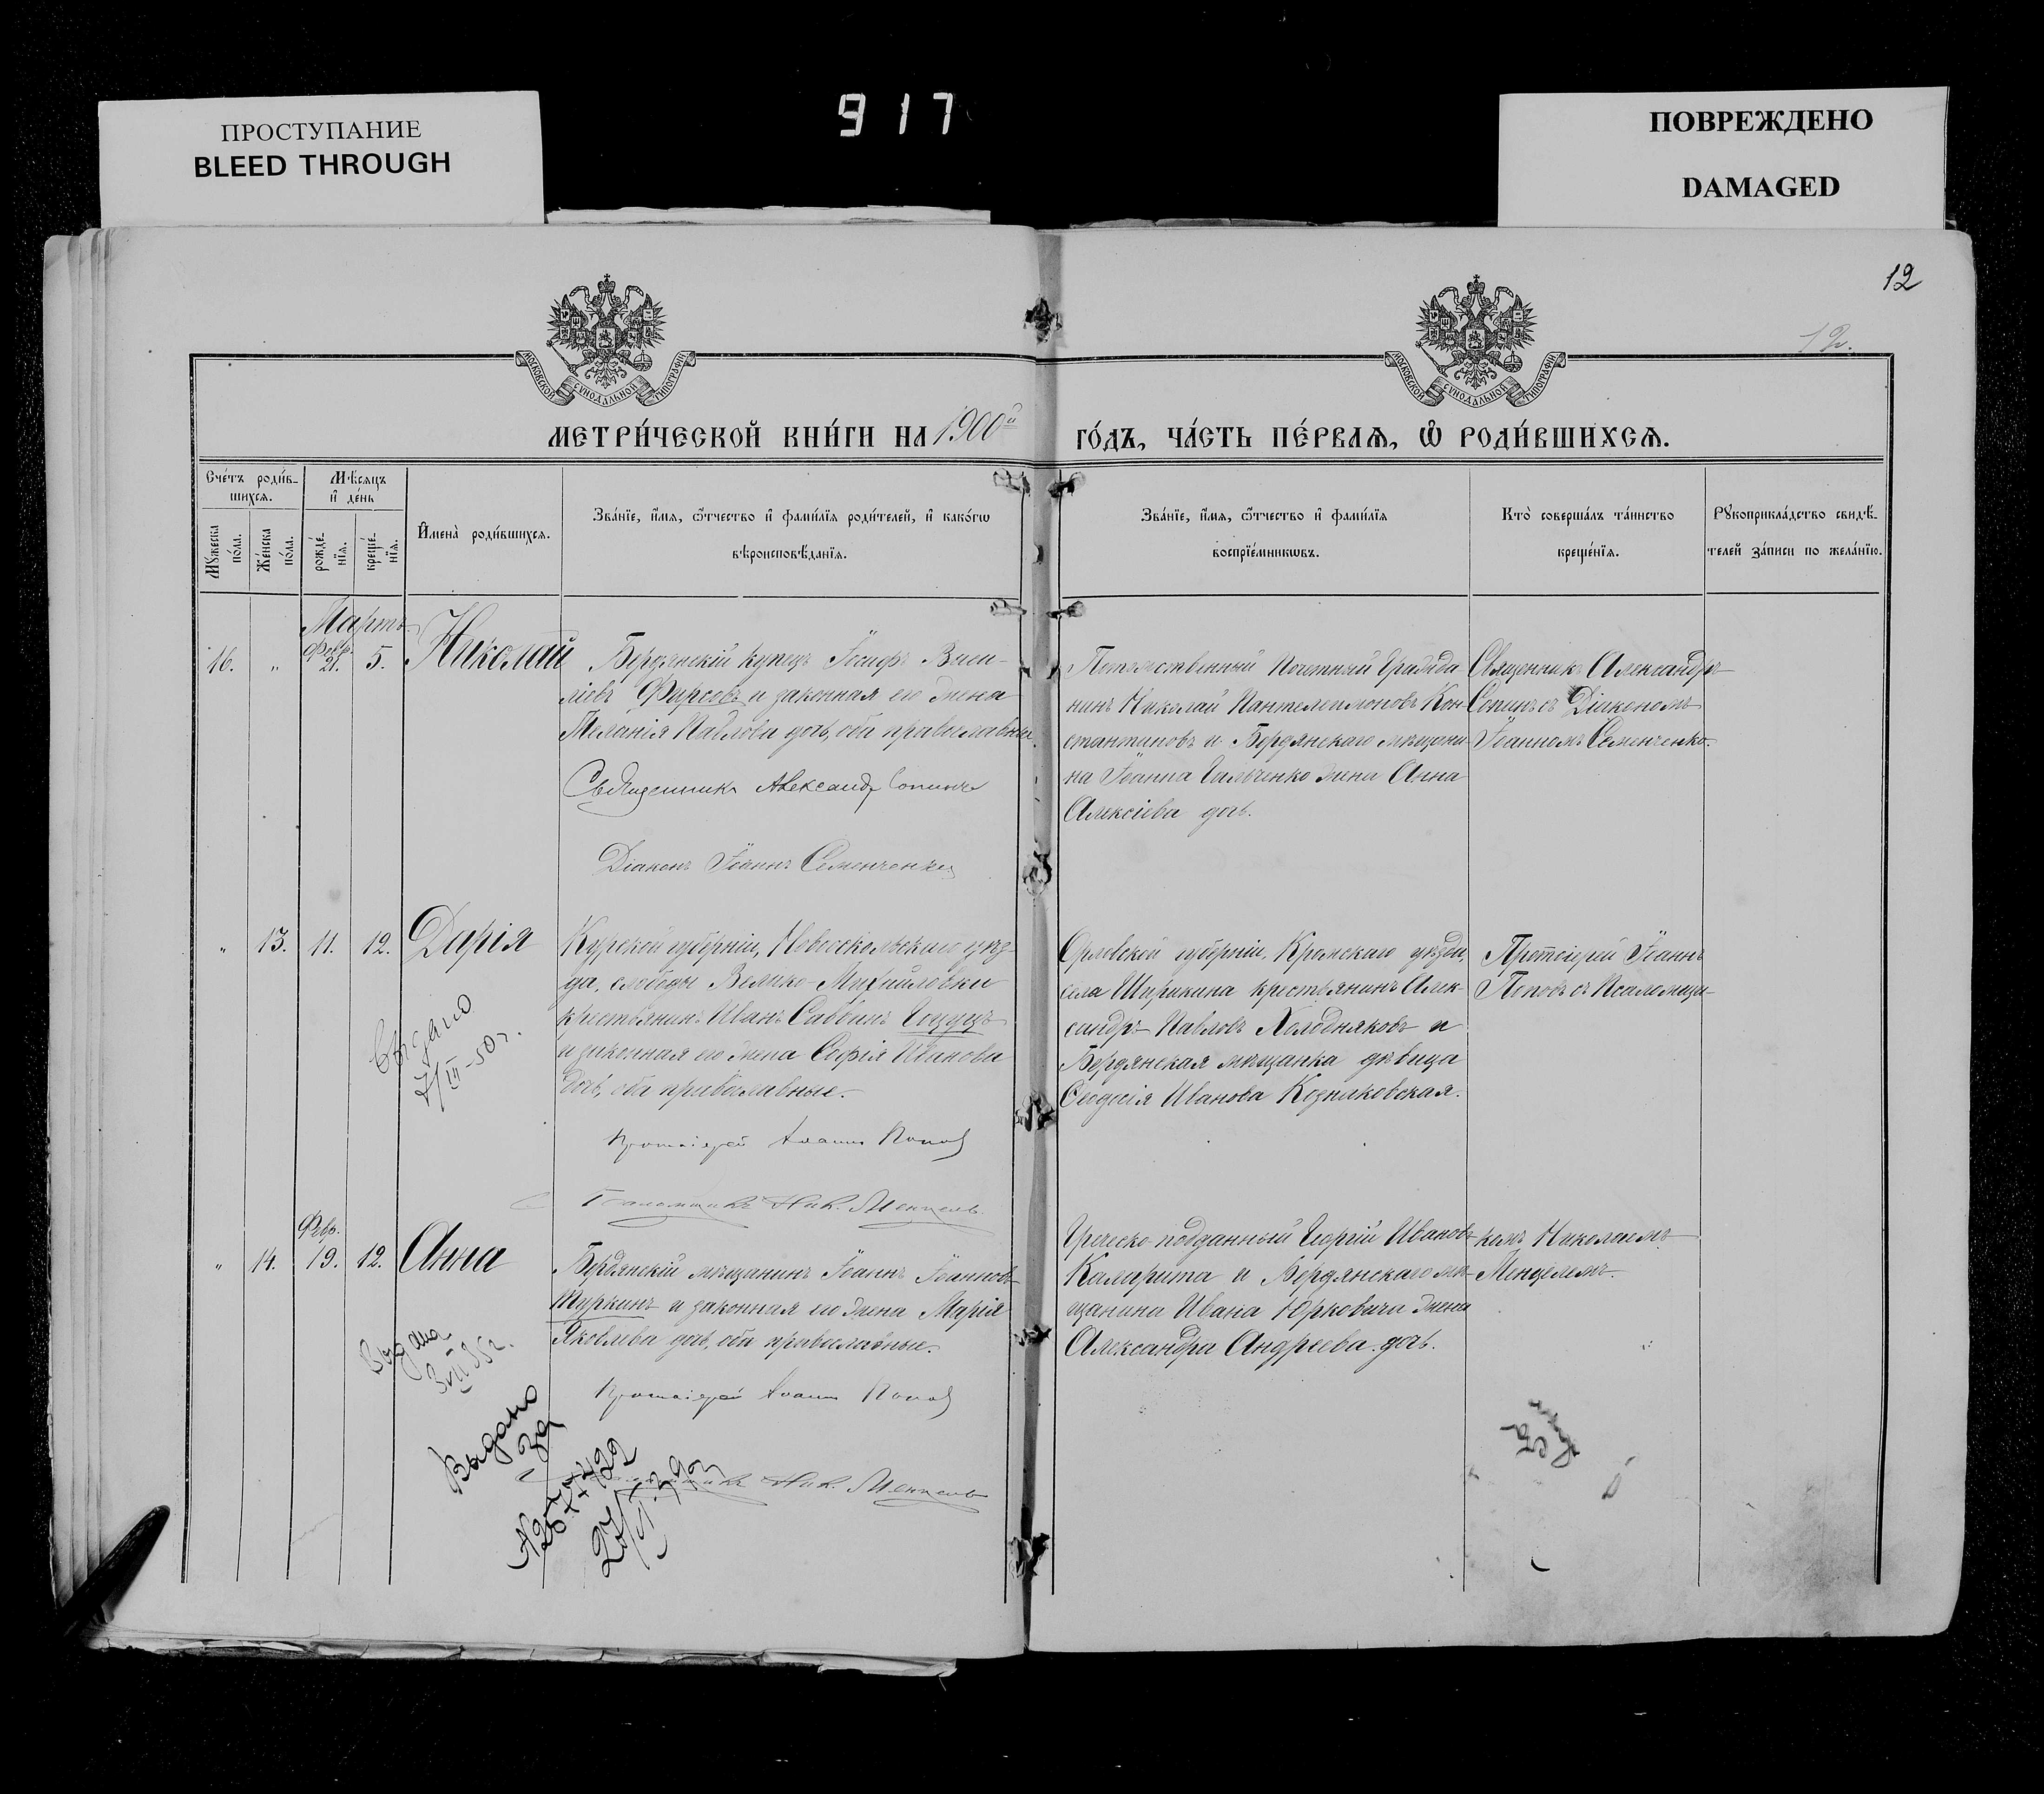 ПРОСТУПАНИЕ
BLEED THROUGH
917
ПОВРЕЖДЕНО
DAMAGED
12
12.
МОСКОВСКОЙ СУНОДАЛЬНОЙ ТИПОГРАФІИ
МОСКОВСКОЙ СУНОДАЛЬНОЙ ТИПОГРАФІИ
МЕТРИ́ЧЕСКОЙ КНИ́ГИ НА 1900й ГО́ДЪ, ЧА́СТЬ ПЕ́РВАѦ, Ѡ РОДИ́ВШИХСѦ.
Сче́тъ роди́в-
шихсѧ.
Мѣ́сѧцъ
и҆ де́нь
Мꙋ́жеска
по́ла.
Же́нска
по́ла.
рожде́-
нїѧ.
креще́-
нїѧ.
И҆мена̀ роди́вшихсѧ.
Зва́нїе, и҆́мѧ, ѻ҆́тчество и҆ фами́лїѧ роди́телей, и҆ како́гѡ
вѣроисповѣ́данїѧ.
Зва́нїе, и҆́мѧ, ѻ҆́тчество и҆ фами́лїѧ
воспрїе́мникѡвъ.
Кто̀ соверша́лъ та́инство
креще́нїѧ.
Рꙋкоприкла́дство свидѣ́-
телей за́писи по жела́нїю.
Мартъ
16. " Февр. 21. 5. Николай
Бердянскій купецъ Іосифъ Васи-
ліевъ Фирсовъ и законная его жена
Меланія Павлова дочь, оба православные.
Священникъ Александр Сопинъ
Діаконъ Іоаннъ Семенченко
Потомственный Почетный Гражда
нинъ Николай Пантелеимоновъ Кон-
стантиновъ и Бердянскаго мѣщани-
на Іоанна жена Анна
Алексіева дочь.
Священникъ Александръ
Сопинъ съ Діакономъ
Іоанномъ Семенченко.
" 13. 11. 12. Дарія
Курской губерніи, Новооскольскаго уѣз-
да, слободы Велико-Михайловки
крестьянинъ Иванъ Саввинъ
и законная его жена Софія Иванова
дочь, оба православные.
Протоіерей Іоаннъ Попов
Псаломщикъ Ник. Менцель.
Орловской губерніи, Кромскаго уѣзда,
села Ширикина крестьянинъ Алек-
сандръ Павловъ Холодняковъ и
Бердянская мѣщанка дѣвица
Ѳеодосія Иванова Козляковская.
Протоіерей Іоаннъ
Поповъ съ Псаломщи-
Выдано
7/III-50г.
Февр.
" 14. 19. 12. Анна
Бердянскій мѣщанинъ Іоаннъ Іоанновъ
Шуркинъ и законная его жена Марія
Яковлева дочь, оба православные.
Протоіерей Іоаннъ Попов
Псаломщикъ Ник. Менцель
Греческо-подданный Георгій Ивановъ
Каларита и Бердянскаго мѣ-
щанина Ивана Юрковича жена
Александра Андреева дочь.
комъ Николаемъ
Менцелемъ.
Выдано
Выдано
за
27/VI.39г